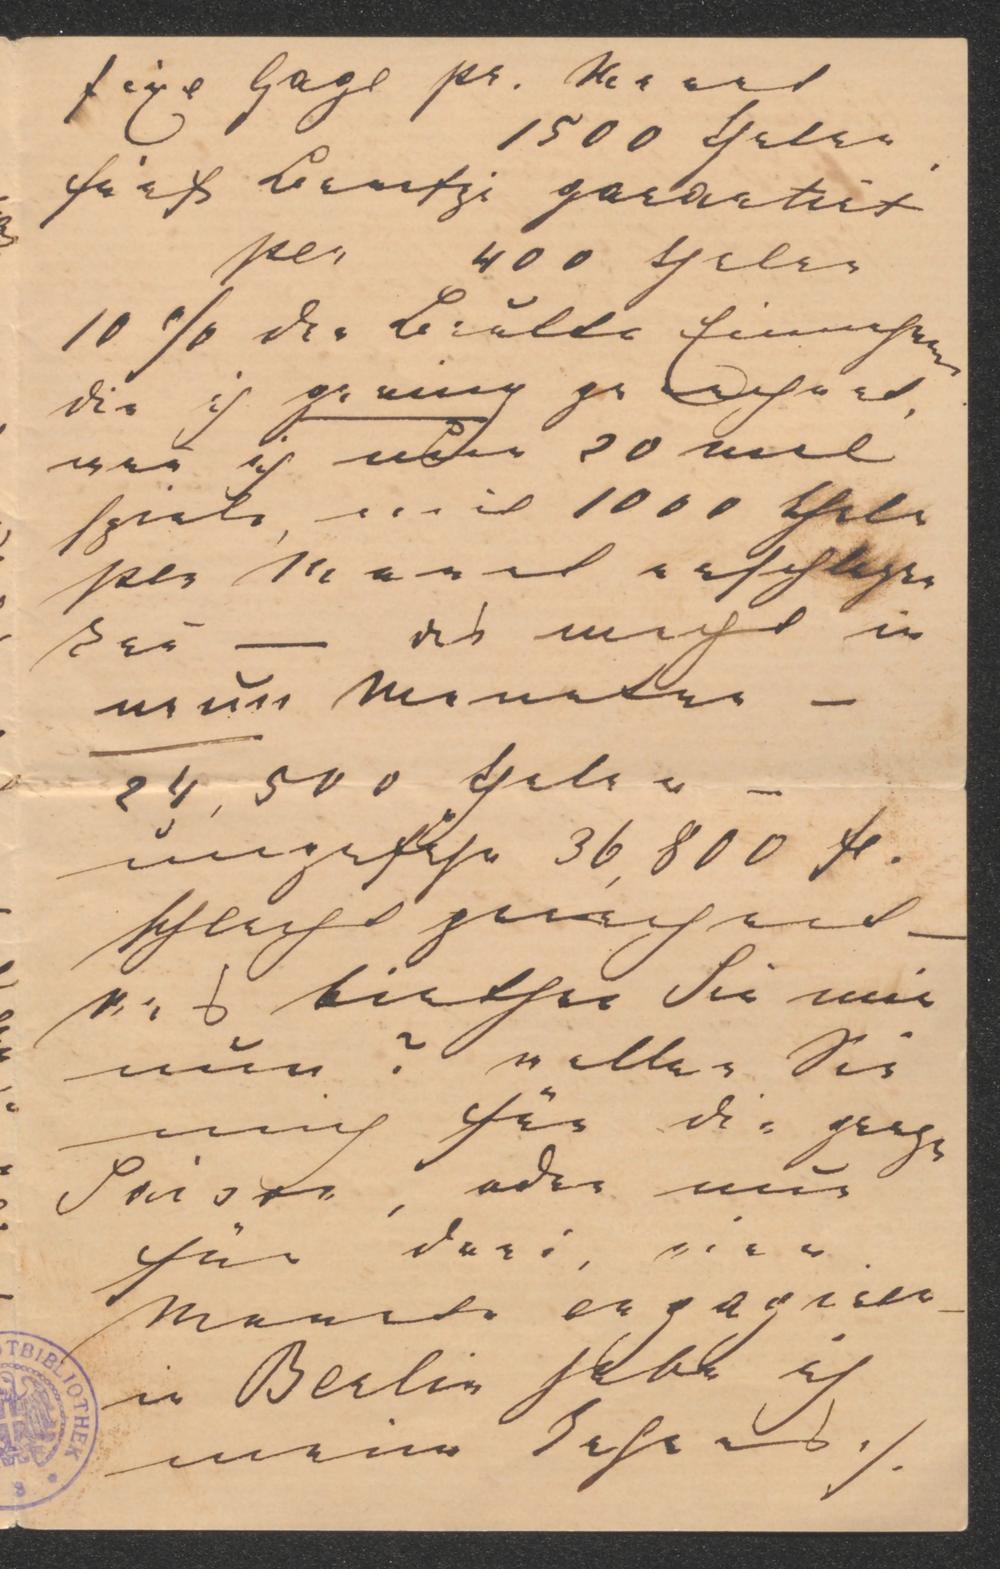 fixe Gage pr. Monat
1500 Thaler
fünf Benefize garantirt
per 400 Thaler
10 % der Brutto Einnahme
die ich gering gerechnet,
wenn ich nur 20 mal
spiele, mit 1000 Thaler
per Monat anschlagen
kann — das macht in
neun Monaten —
24,500 Thaler —
ungefähr 36,800 fl.
schlecht gerechnet —
was biethen Sie mir
nun? wollen Sie
mich für die ganze
Saison, oder nur
für drei, vier
Monate engagieren —
in Berlin habe ich
meine ./.
TBIBLIOTHEK